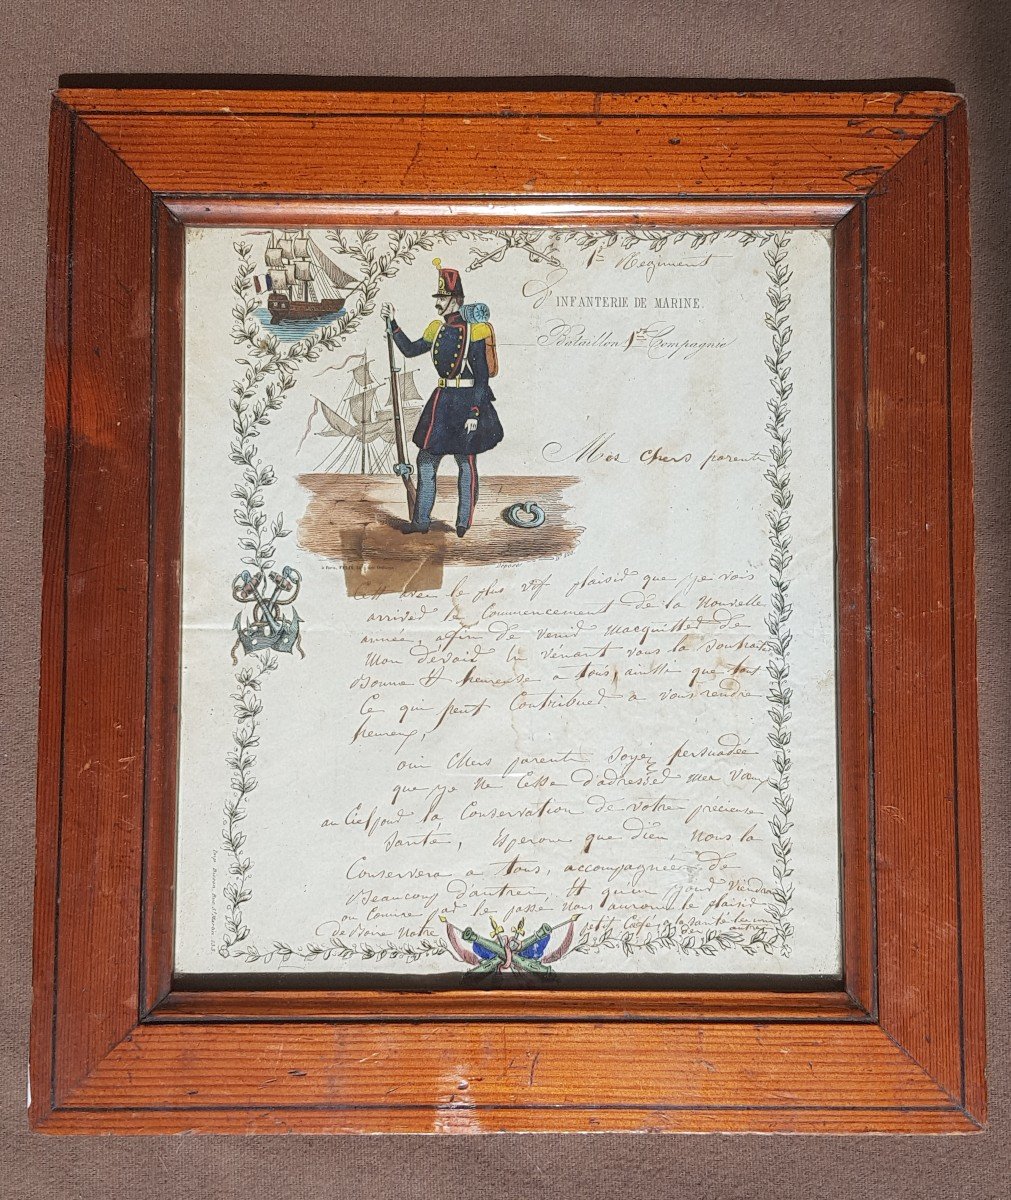 1er Regiment
INFANTERIE DE MARINE.
Bataillon 1re Compagnie
Mes chers parents
Déposé
C'est avec le plus vif plaisir que je vois
arriver le Commencement de la Nouvelle
année, afin de venir macquitter de
Mon devoir En venant vous la Souhaiter
Bonne Et heureuse a tous, ainssi que tous
Ce qui peut Contribuer a vous rendre
heureux,
oui Chers parents Soyez persuadée
que je Ne Cesse d'adresser mes vœux
au Ciel pour la Conservation de votre précieuse
Santé, Esperons que dieu Nous la
Conservera a tous, accompagnées de
Beaucoup d'autres Et qu'un jour viendra
ou Comme par le passé Nous aurons le plaisir
de Boire Notre petit Café